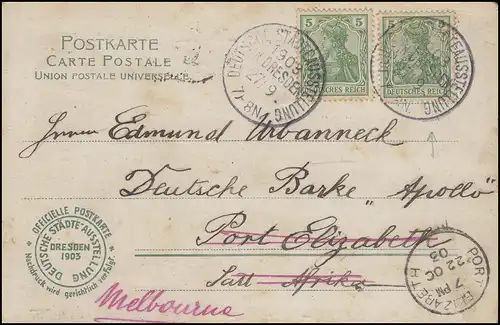 POSTKARTE
CARTE POSTALE
UNION POSTALE UNIVERSELLE
5 5
DEUTSCHES REICH DEUTSCHES REICH
DEUTSCHE STÄDTEAUSSTELLUNG
1903
DRESDEN
27/9
8N
Herrn Edmund Arnecken
Deutsche Barke "Apollo"
Port Elizabeth
Melbourne
OFFICIELLE POSTKARTE
DEUTSCHE STÄDTE-AUSSTELLUNG
DRESDEN
1903
Nachdruck wird gerichtlich verfolgt.
PORT ELIZABETH
7 PM
22 OC
03